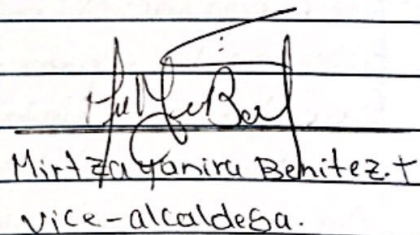 Mirtza Yanira Benitez. t
vice-alcaldesa.